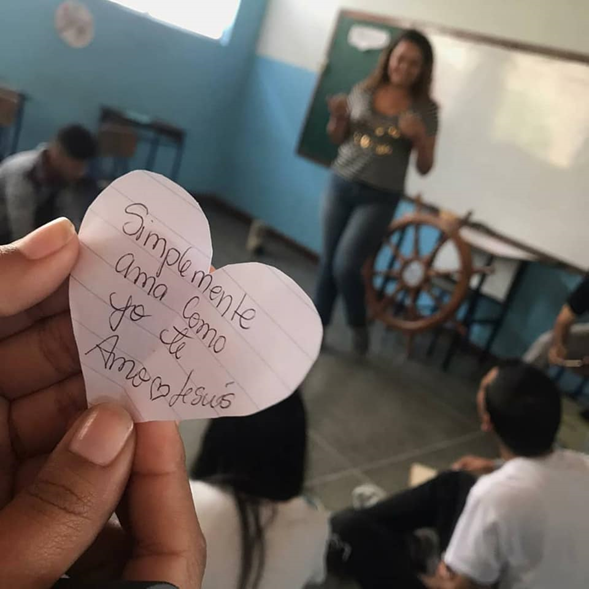 Simplemente
ama Como
yo te
Amo♡Jesús